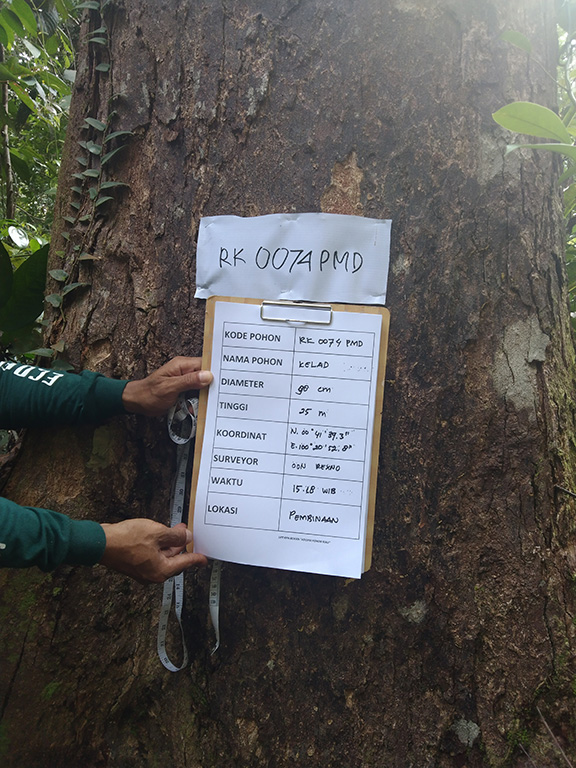 RK 0074 PMD
KODE POHON RK 0074 PMD
NAMA POHON KELAD
DIAMETER 90 cm
TINGGI 25 m
KOORDINAT N. 00° 41' 39.3"
E. 100° 20' 52.8"
SURVEYOR
WAKTU 15.18 WIB
LOKASI PEMBINAAN